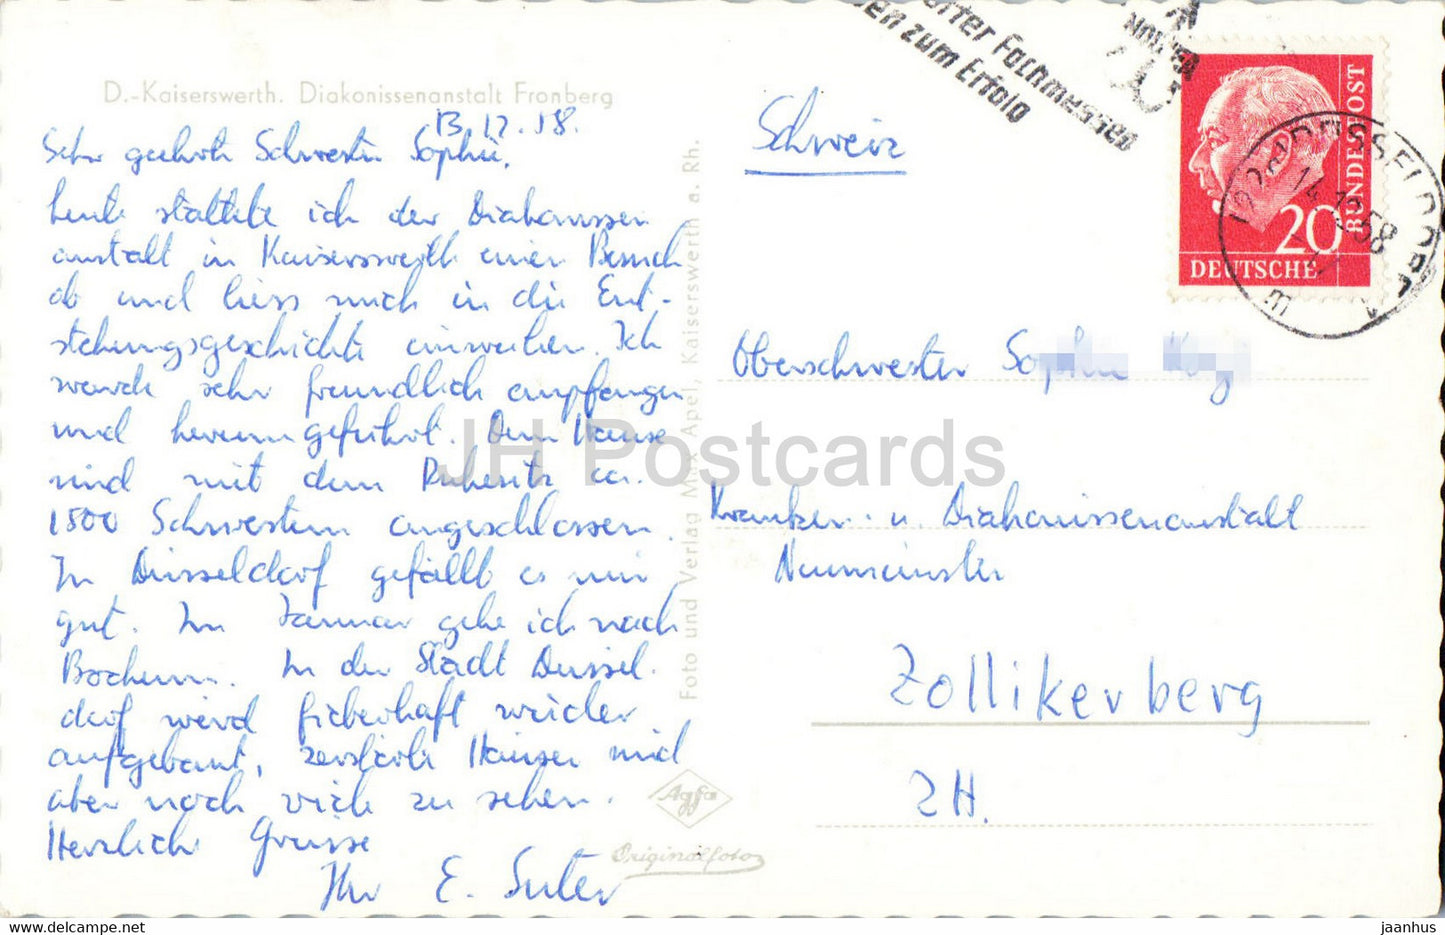 D.-Kaiserswerth. Diakonissenanstalt Fronberg
13.12.58.
Sehr geehrte Schwester Sophie,
heute stattete ich der Diakonissen
anstalt in Kaiserswerth einen Besuch
ab und liess mich in die Ent-
stehungsgeschichte einweihen. Ich
wurde sehr freundlich empfangen
und herumgeführt. Dem Hause
sind mit dem Ruhesitz ca.
1800 Schwestern angeschlossen.
In Düsseldorf gefällt es mir
gut. Im Januar gehe ich nach
Bochum. In der Stadt Düssel-
dorf wird fieberhaft wieder
aufgebaut, zerstörte Häuser sind
aber noch viele zu sehen.
Herzliche Grüsse
Ihr E. Suter
Foto und Verlag Max Apel, Kaiserswerth a. Rh.
Agfa
Originalfoto
Schweiz
Fachmessen
zum Erfolg
DEUTSCHE
BUNDESPOST
20
DÜSSELDORF
14.12.58
Oberschwester Sophie
Kranken- u. Diakonissenanstalt
Neumünster
Zollikerberg
ZH.
JH Postcards
www.delcampe.net
jaanhus